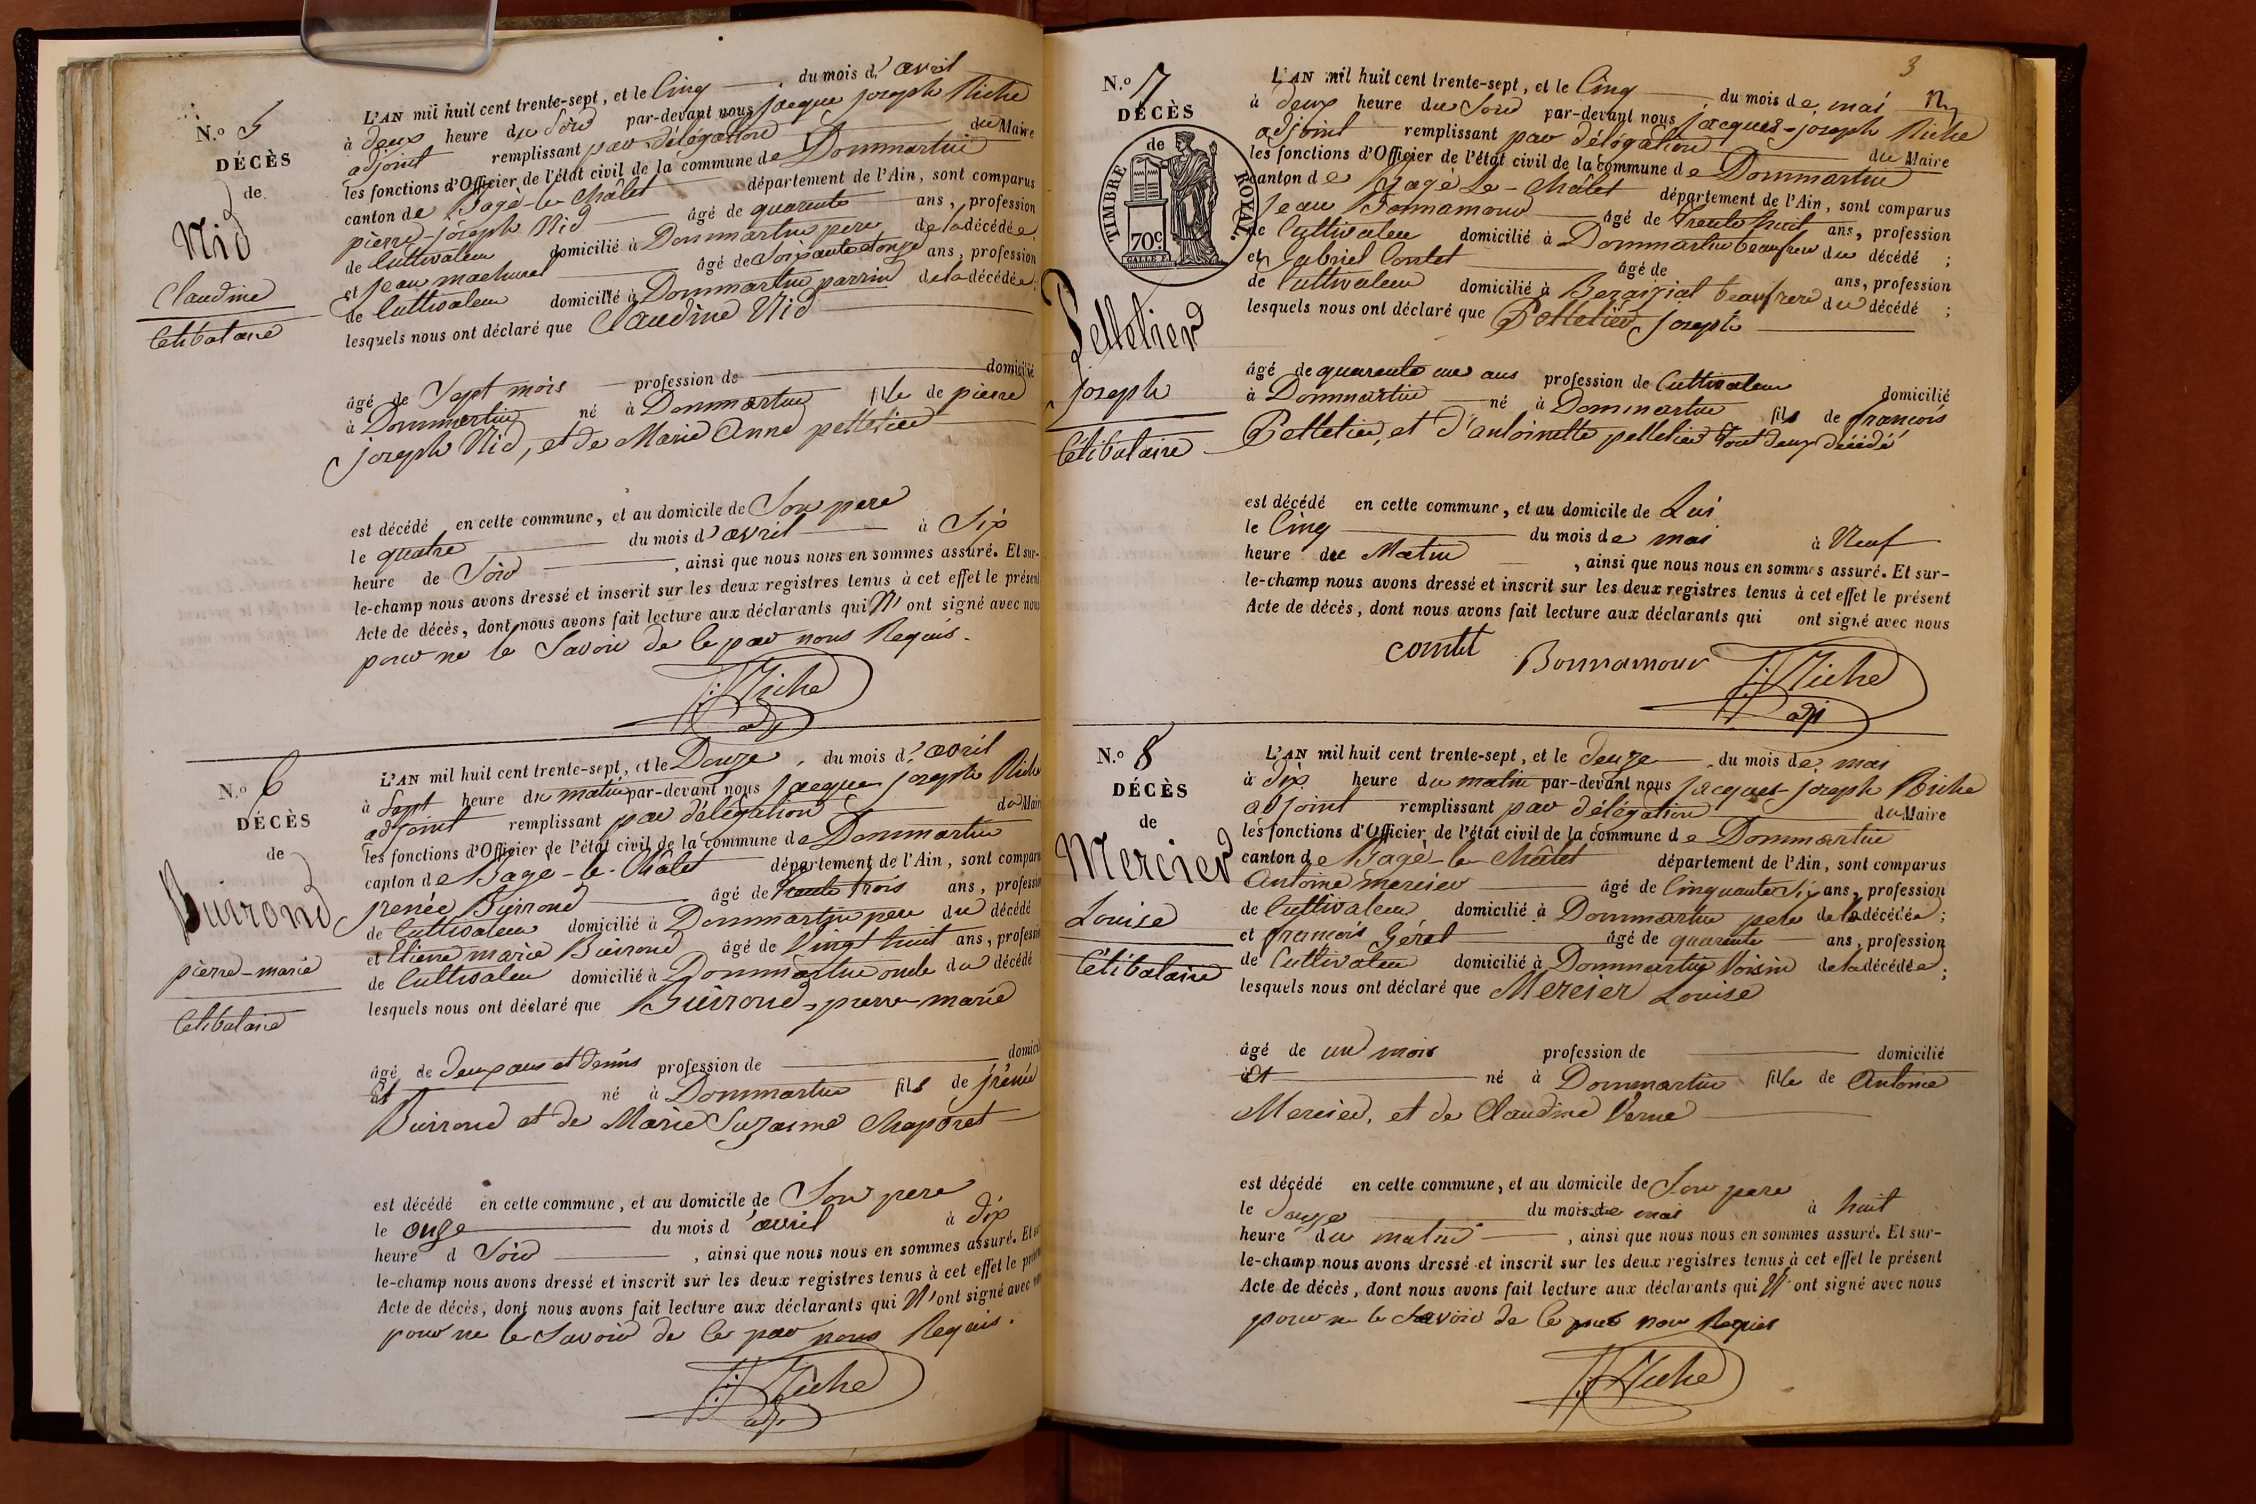 N.o 5
DÉCÈS
de
Nid
Claudine
Célibataire
L'AN mil huit cent trente-sept, et le Cinq du mois d'avril
à deux heure du Soir par-devant nous jacque joseph Riche
adjoint remplissant par délégation du Maire
les fonctions d'Officier de l'état civil de la commune de Dommartin
canton de Bagé-le-Châtel département de l'Ain, sont comparus
pierre-joseph Nid âgé de quarente ans, profession
de Cultivateur domicilié à Dommartin pere de la décédée
et jean machurat âgé de Soixante et onze ans, profession
de Cultivateur domicilié à Dommartin parrin de la décédée;
lesquels nous ont déclaré que Claudine Nid
âgé de Sept mois profession de domicilié
à Dommartin né à Dommartin fille de pierre
joseph Nid, et de Marie Anne pelletier
est décédé en cette commune, et au domicile de Son pere
le quatre du mois d'avril à Six
heure de Soir, ainsi que nous nous en sommes assuré. Et sur-
le-champ nous avons dressé et inscrit sur les deux registres tenus à cet effet le présent
Acte de décès, dont nous avons fait lecture aux déclarants qui N'ont signé avec nous
pour ne le Savoir de le par nous Requis.
J:J Riche
adj.
N.o 6
DÉCÈS
de
Buirrond
pierre-marie
Célibataire
L'AN mil huit cent trente-sept, et le Douze, du mois d'avril
à Sept heure du matin par-devant nous jacque joseph Riche
adjoint remplissant par délégation du Maire
les fonctions d'Officier de l'état civil de la commune de Dommartin
canton de Bagé-le-Châtel département de l'Ain, sont comparus
jrenée Buirrond âgé de trente trois ans, profession
de Cultivateur domicilié à Dommartin pere du décédé
et Etienne marie Buirrond âgé de Vingt huit ans, profession
de Cultivateur domicilié à Dommartin oncle du décédé
lesquels nous ont déclaré que Buirrond, pierre-marie
âgé de deux ans et demis profession de domicilié
et né à Dommartin fils de jrénée
Buirrond et de Marie Suzanne Chaporet
est décédé en cette commune, et au domicile de Son pere
le onze du mois d'avril à dix
heure d Soir, ainsi que nous nous en sommes assuré. Et sur
le-champ nous avons dressé et inscrit sur les deux registres tenus à cet effet le présent
Acte de décès, dont nous avons fait lecture aux déclarants qui N'ont signé avec nous
pour ne le Savoir de le par nous Requis.
J:J Riche
adj.
3
N.o 7
DÉCÈS
de
TIMBRE ROYAL.
70c
Pelletier
joseph
Célibataire
L'AN mil huit cent trente-sept, et le Cinq du mois de mai
à deux heure du Soir par-devant nous jacques-joseph Riche
adjoint remplissant par délégation du Maire
les fonctions d'Officier de l'état civil de la commune de Dommartin
canton de Bagé-Le-Châtel département de l'Ain, sont comparus
jean Bonnamour âgé de trente huit ans, profession
de Cultivateur domicilié à Dommartin beaufrere du décédé;
et Gabriel Comtet âgé de ans, profession
de Cultivateur domicilié à Beraiziat beaufrere du décédé;
lesquels nous ont déclaré que Pelletier joseph
âgé de quarente un ans profession de Cultivateur domicilié
à Dommartin né à Dommartin fils de françois
Pelletier, et d'antoinette pelletier tout deux décédé
est décédé en cette commune, et au domicile de Lui
le Cinq du mois de mai à Neuf
heure du Matin, ainsi que nous nous en sommes assuré. Et sur-
le-champ nous avons dressé et inscrit sur les deux registres tenus à cet effet le présent
Acte de décès, dont nous avons fait lecture aux déclarants qui ont signé avec nous
comtet Bonnamour J:J Riche
adj
N.o 8
DÉCÈS
de
Mercier
Louise
Célibataire
L'AN mil huit cent trente-sept, et le douze du mois de mai
à dix heure du matin par-devant nous jacques-joseph Riche
adjoint remplissant par délégation du Maire
les fonctions d'Officier de l'état civil de la commune de Dommartin
canton de Bagé-le-Châtel département de l'Ain, sont comparus
Antoine mercier âgé de Cinquante Six ans, profession
de Cultivateur domicilié à Dommartin pere de la décédée;
et françois Gérat âgé de quarente ans, profession
de Cultivateur domicilié à Dommartin Voisin de la décédée;
lesquels nous ont déclaré que Mercier Louise
âgé de un mois profession de domicilié
et né à Dommartin fille de Antoine
Mercier, et de Claudine Verne
est décédé en cette commune, et au domicile de Son pere
le douze du mois de mai à huit
heure du matin, ainsi que nous nous en sommes assuré. Et sur-
le-champ nous avons dressé et inscrit sur les deux registres tenus à cet effet le présent
Acte de décès, dont nous avons fait lecture aux déclarants qui N'ont signé avec nous
pour ne le Savoir de le par nous Requis
J:J Riche